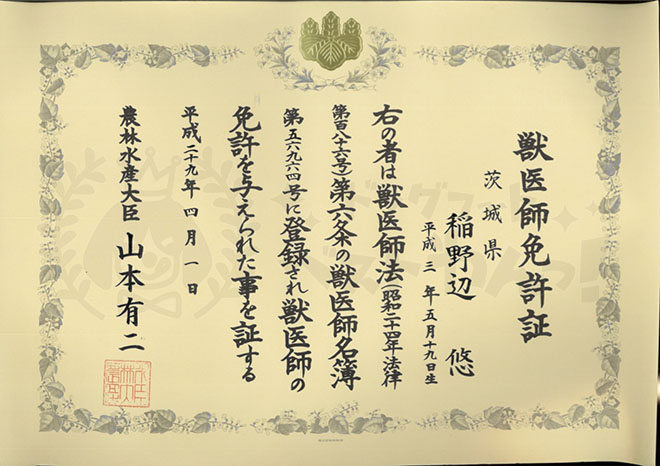 獣医師免許証
茨城県
稲野辺 悠
平成三年五月十九日生
右の者は獣医師法(昭和二十四年法律
第百八十六号)第六条の獣医師名簿
第五六九六四号に登録され獣医師の
免許を与えられた事を証する
平成二十九年四月一日
農林水産大臣 山本有二